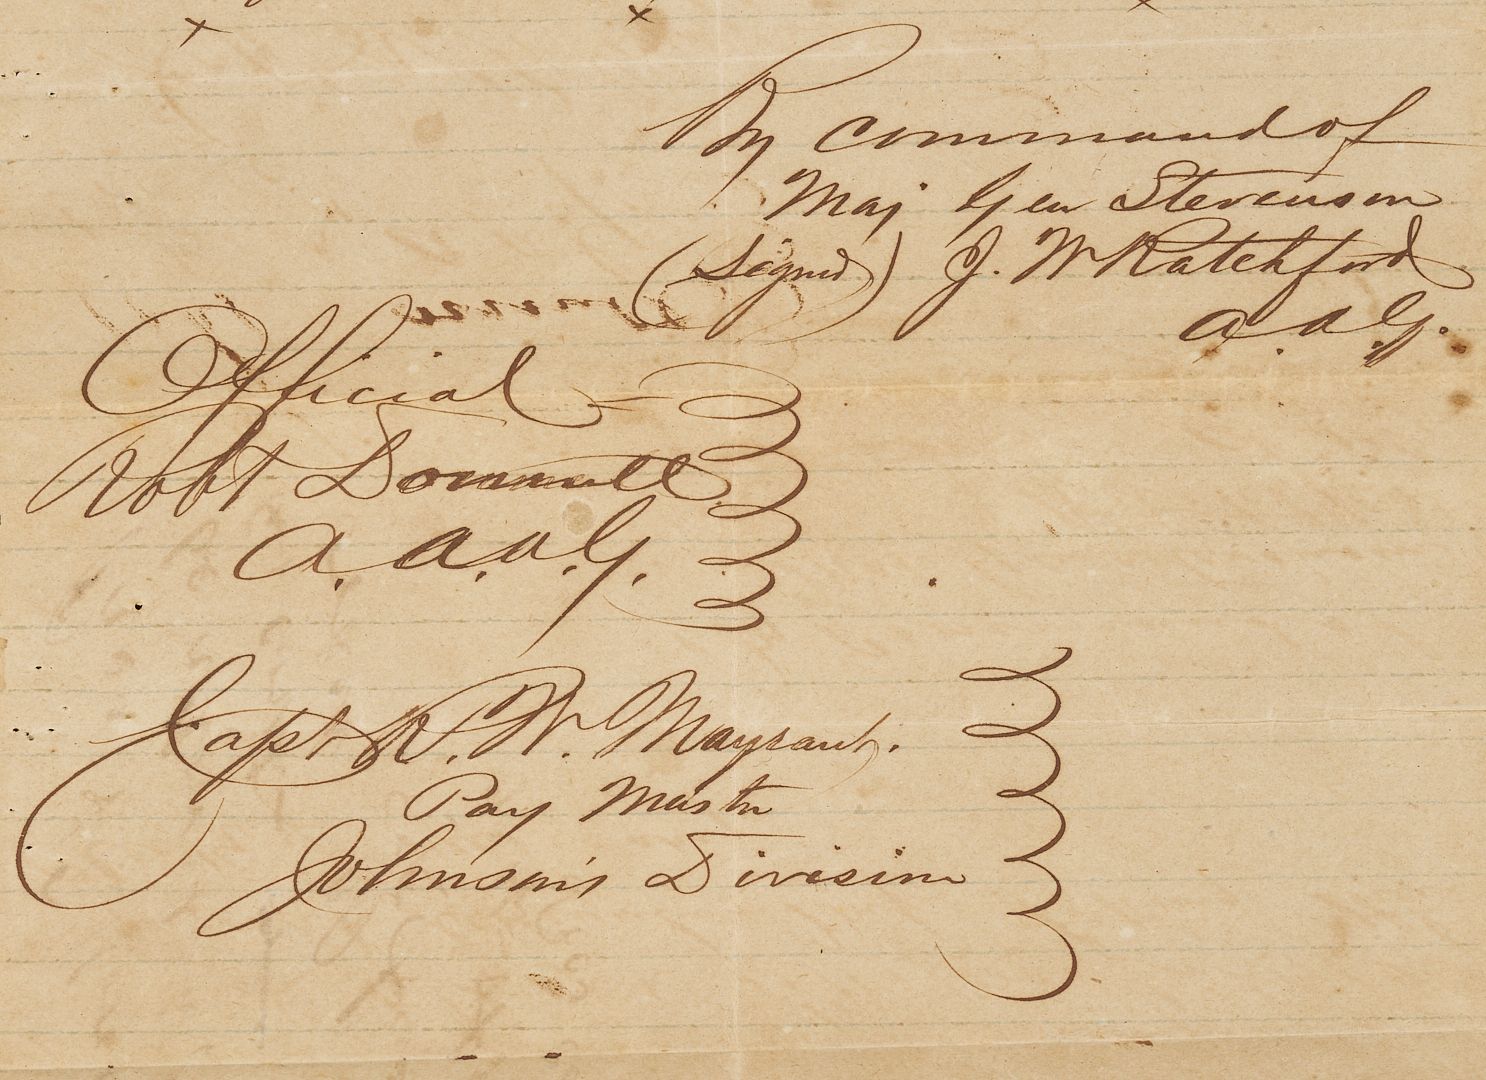 x x x
By command of
Maj Gen Stevenson
(Signed) J. W Ratchford
A. A. G.
Official
Robt Donnell
A. A. A. G.
Capt R. W. Mayrant.
Pay Mastr
Johnson's Division